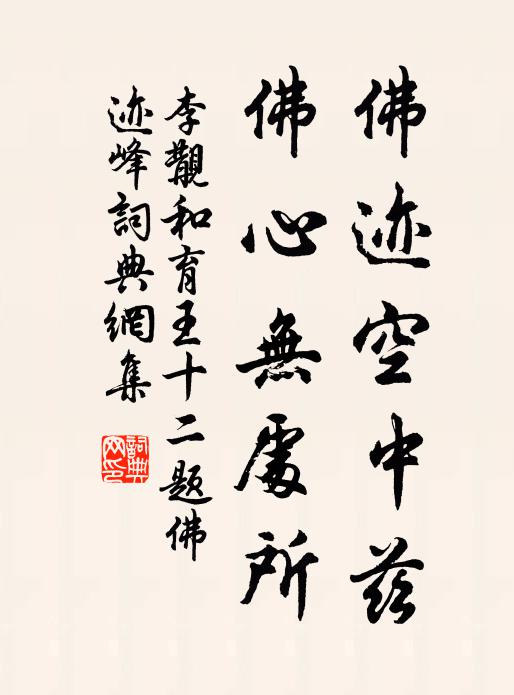 佛迹空中兹
佛心無處所
李觀和育王十二題佛
迹峰詞典網集
詞典网印